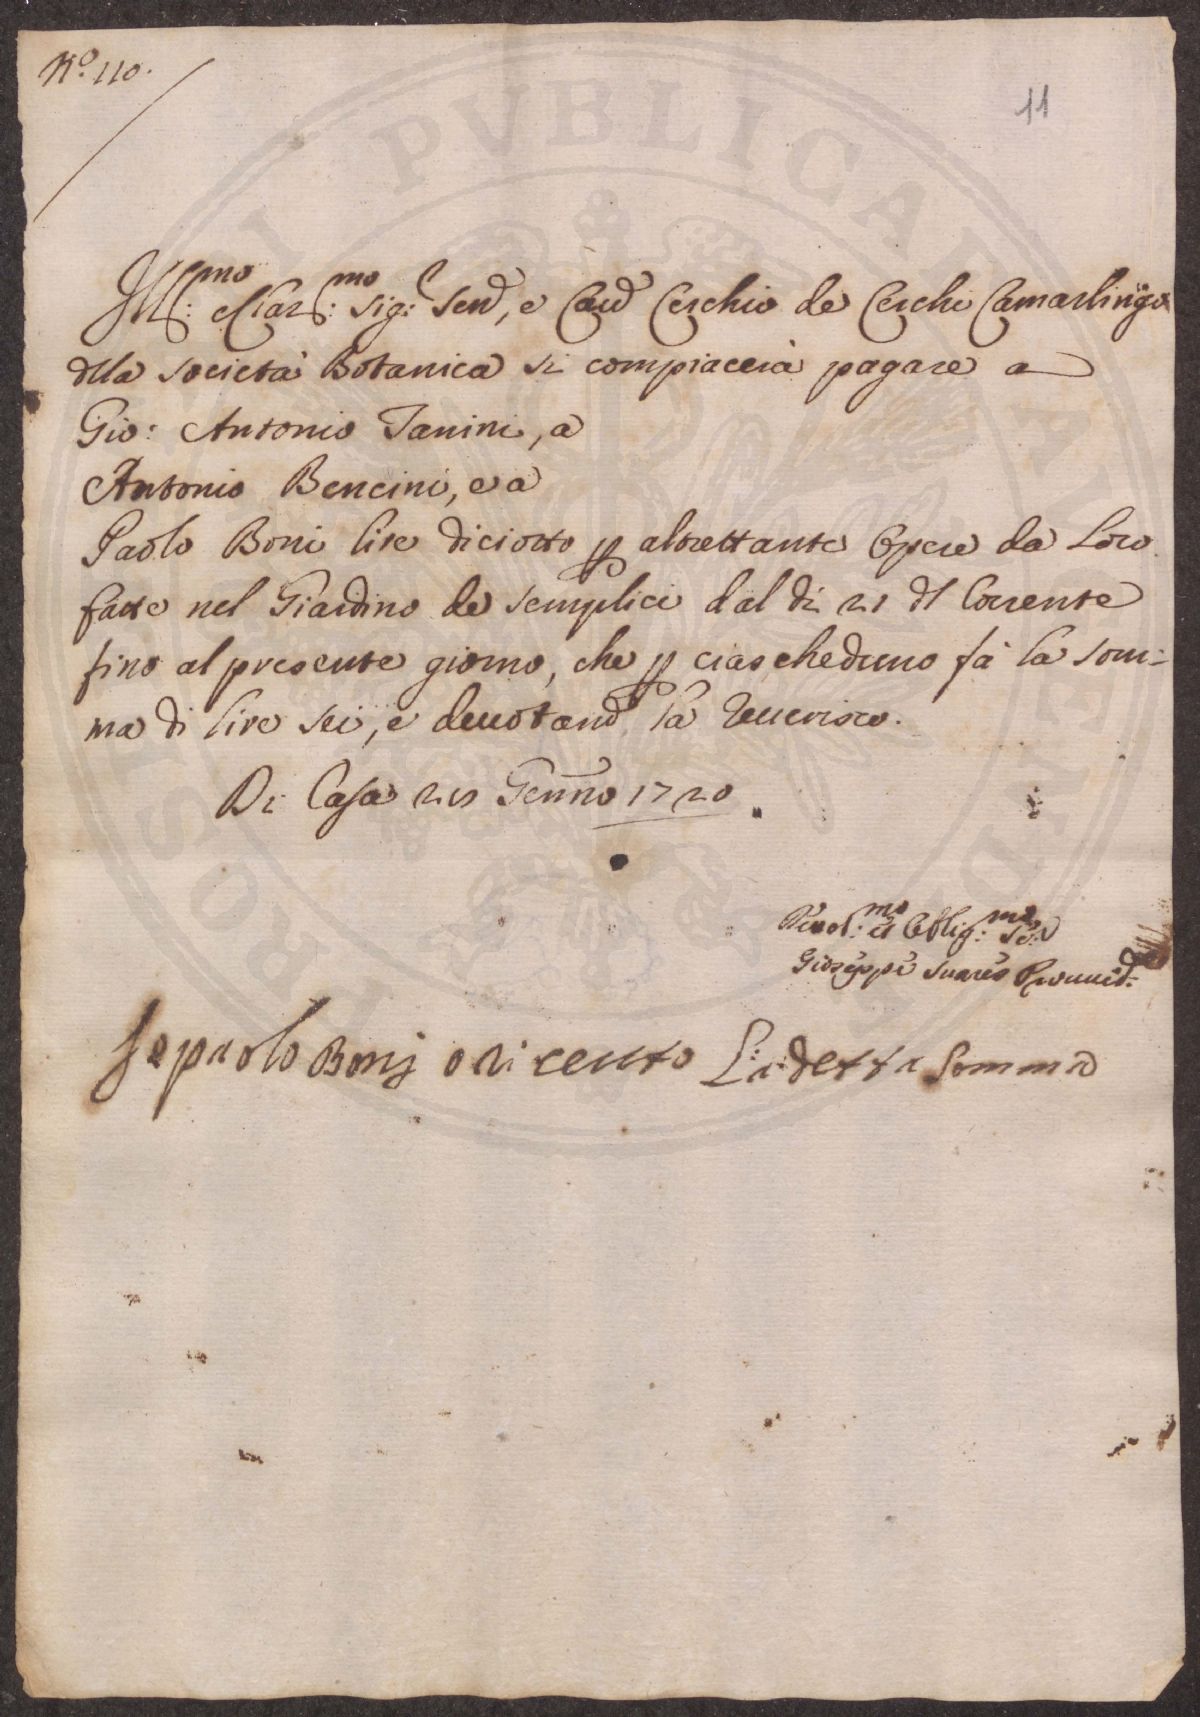 N.o 110.
11
Ill:mo e Clar:mo Sig:r Send, e Caud Cerchio de Cerchi Camarlingo
dlla società Botanica si compiacerà pagare a
Gio: Antonio Tanini, a
Antonio Bencini, e a
Paolo Boni lire diciotto p altrettante Opere da Loro
fatte nel Giardino de semplici dal dì 21 dl Corrente
fino al presente giorno, che p ciascheduno fà la som:
ma di lire sei, e deuotand la reuerisco.
Di Casa Genno 1720
Deuol:mo et Oblig:mo
Giuseppe Suares
Io paolo Bonj o riceuto La detta somma